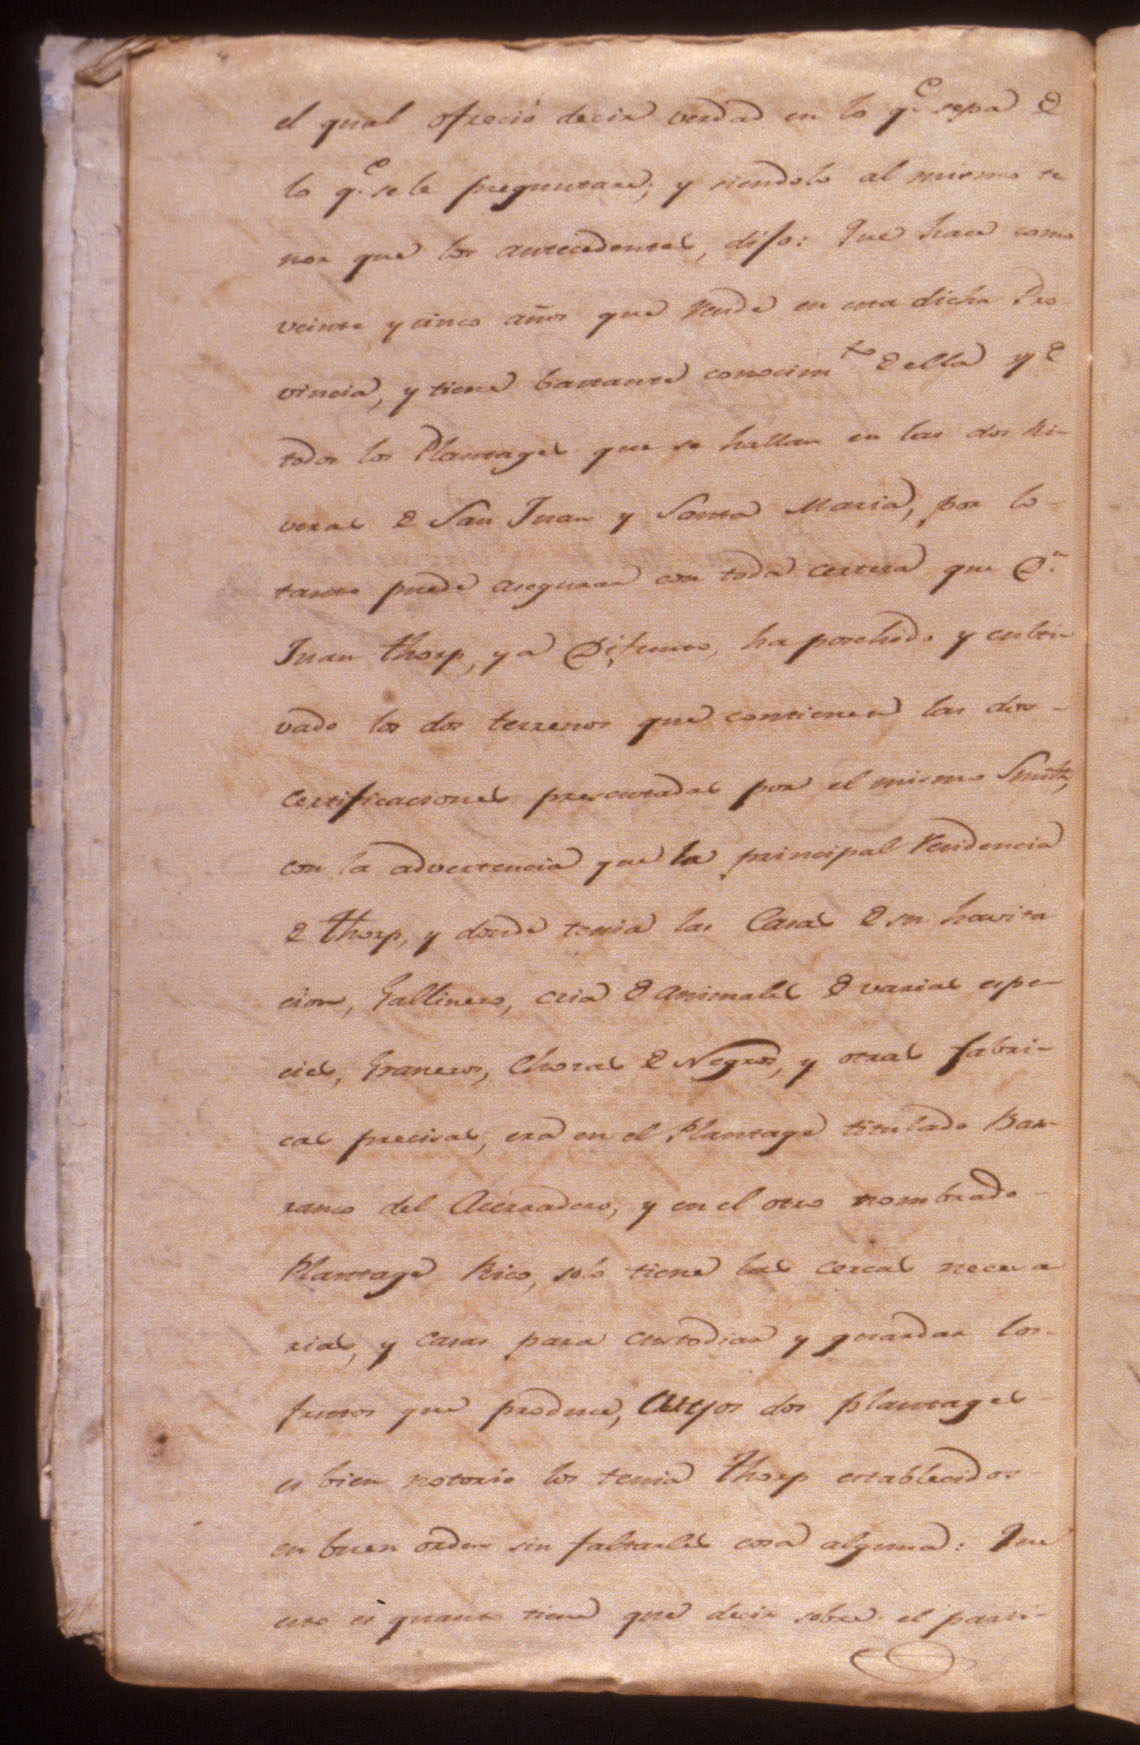 el qual ofreció decir verdad en lo q.e sepa de
lo q.e se le preguntare; y siendolo al mismo te
nor que los antecedentes, dijo: Que hace como
veinte y cinco años que reside en esta dicha Pro-
vincia, y tiene bastante conocim.to de ella y de
todos los Plantages que se hallan en las dos Ri-
veras de San Juan y Santa Maria, por lo
tanto puede asegurar con toda certeza que D.n
Juan Thorp, ya Difunto, ha posehido y culti-
vado los dos terrenos que contienen las dos
certificaciones presentadas por el mismo Smith,
con la advertencia que la principal residencia
de Thorp, y donde tenia las Casas de su havita
cion, Gallinero, cria de animales de varias espe-
cies, Graneros, Chozas de Negros, y otras fabri-
cas precisas, era en el Plantage titulado Bar-
ranco del Acerradero, y en el otro nombrado
Plantage Rico, solo tiene las cercas necesa
rias, y casas para custodiar y guardar los
frutos que produce, Cuyos dos plantages
es bien notorio los tenia Thorp establecidos
en buen orden sin faltarles cosa alguna: Que
esto es quanto tiene que decir sobre el parti-